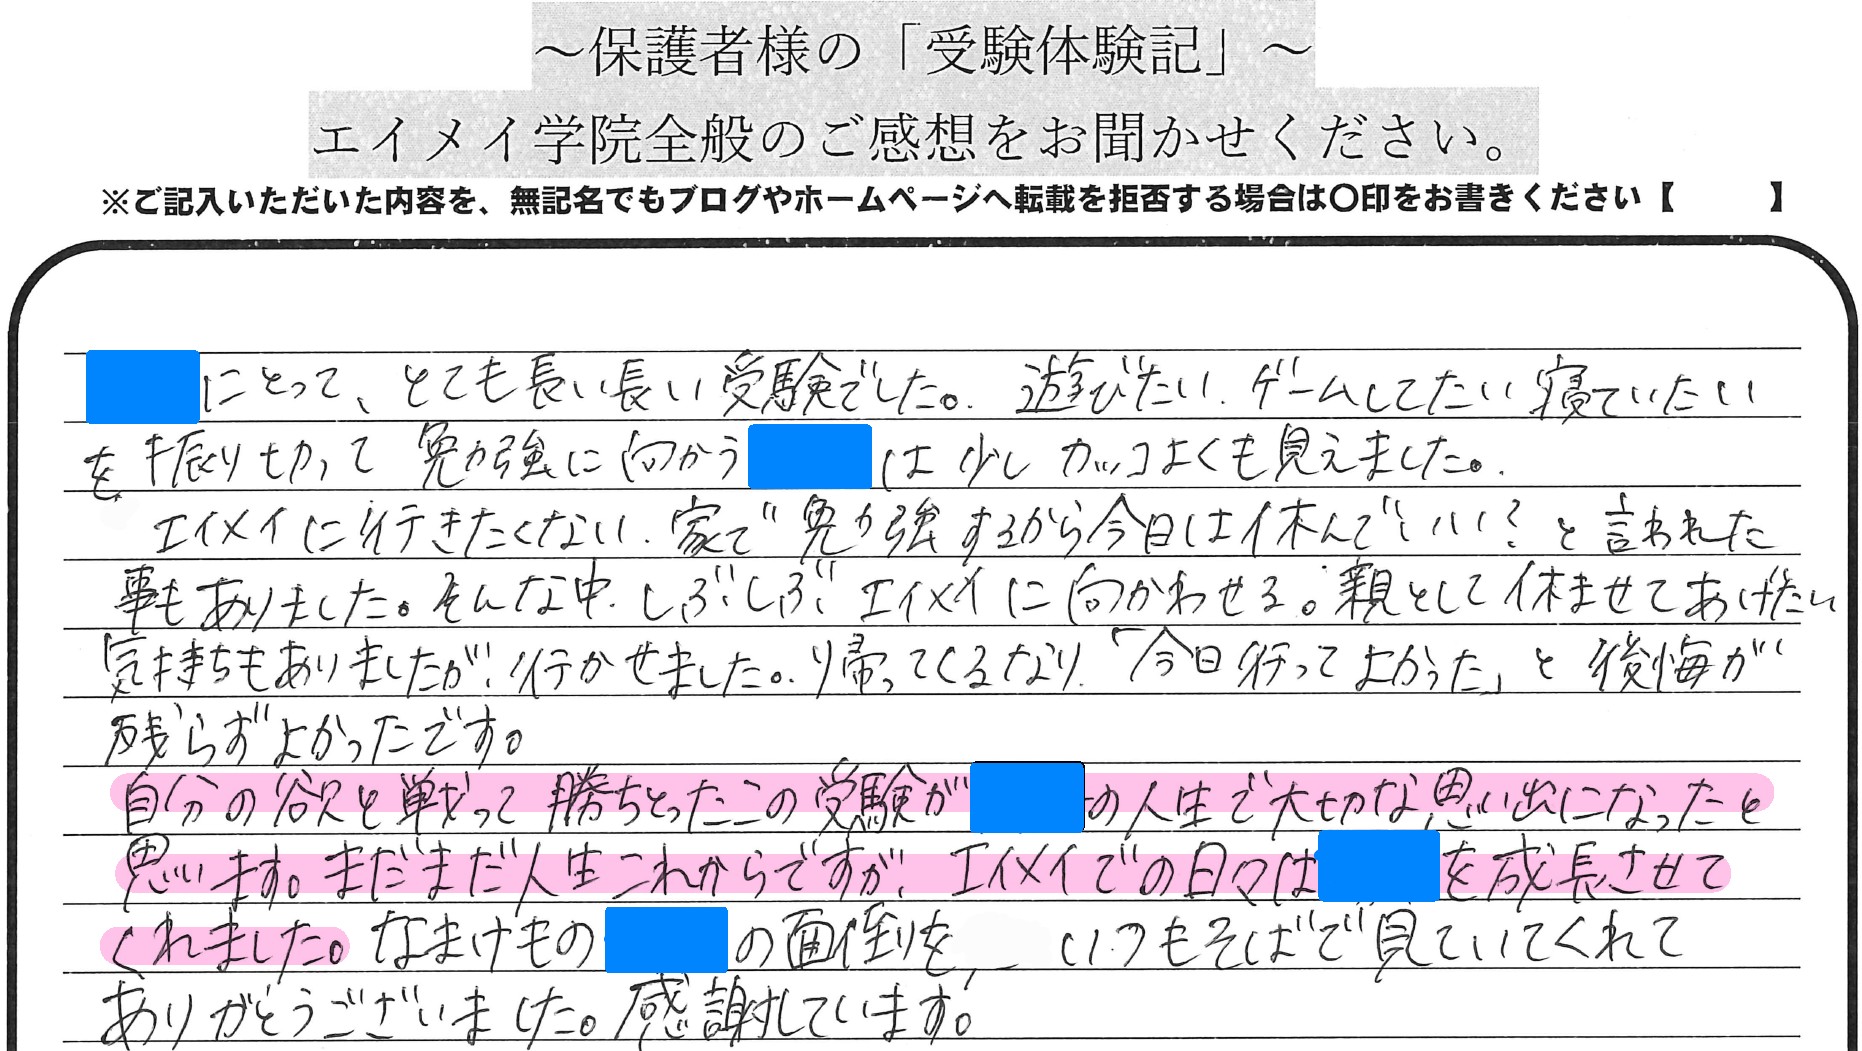 ～保護者様の「受験体験記」～
エイメイ学院全般のご感想をお聞かせください。
※ご記入いただいた内容を、無記名でもブログやホームページへ転載を拒否する場合は〇印をお書きください【　　　】
にとって、とても長い長い受験でした。遊びたい、ゲームしてたい寝ていたい
を振り切って勉強に向かうは少しカッコよくも見えました。
エイメイに行きたくない、家で勉強するから今日は休んでいい？と言われた
事もありました。そんな中、しぶしぶエイメイに向かわせる。親として休ませてあげたい
気持ちもありましたが、行かせました。帰ってくるなり、「今日行ってよかった」と後悔が
残らずよかったです。
自分の欲と戦って勝ちとったこの受験がの人生で大切な思い出になったと
思います。まだまだ人生これからですが、エイメイでの日々はを成長させて
くれました。なまけものの面倒をいつもそばで見ていてくれて
ありがとうございました。感謝しています。